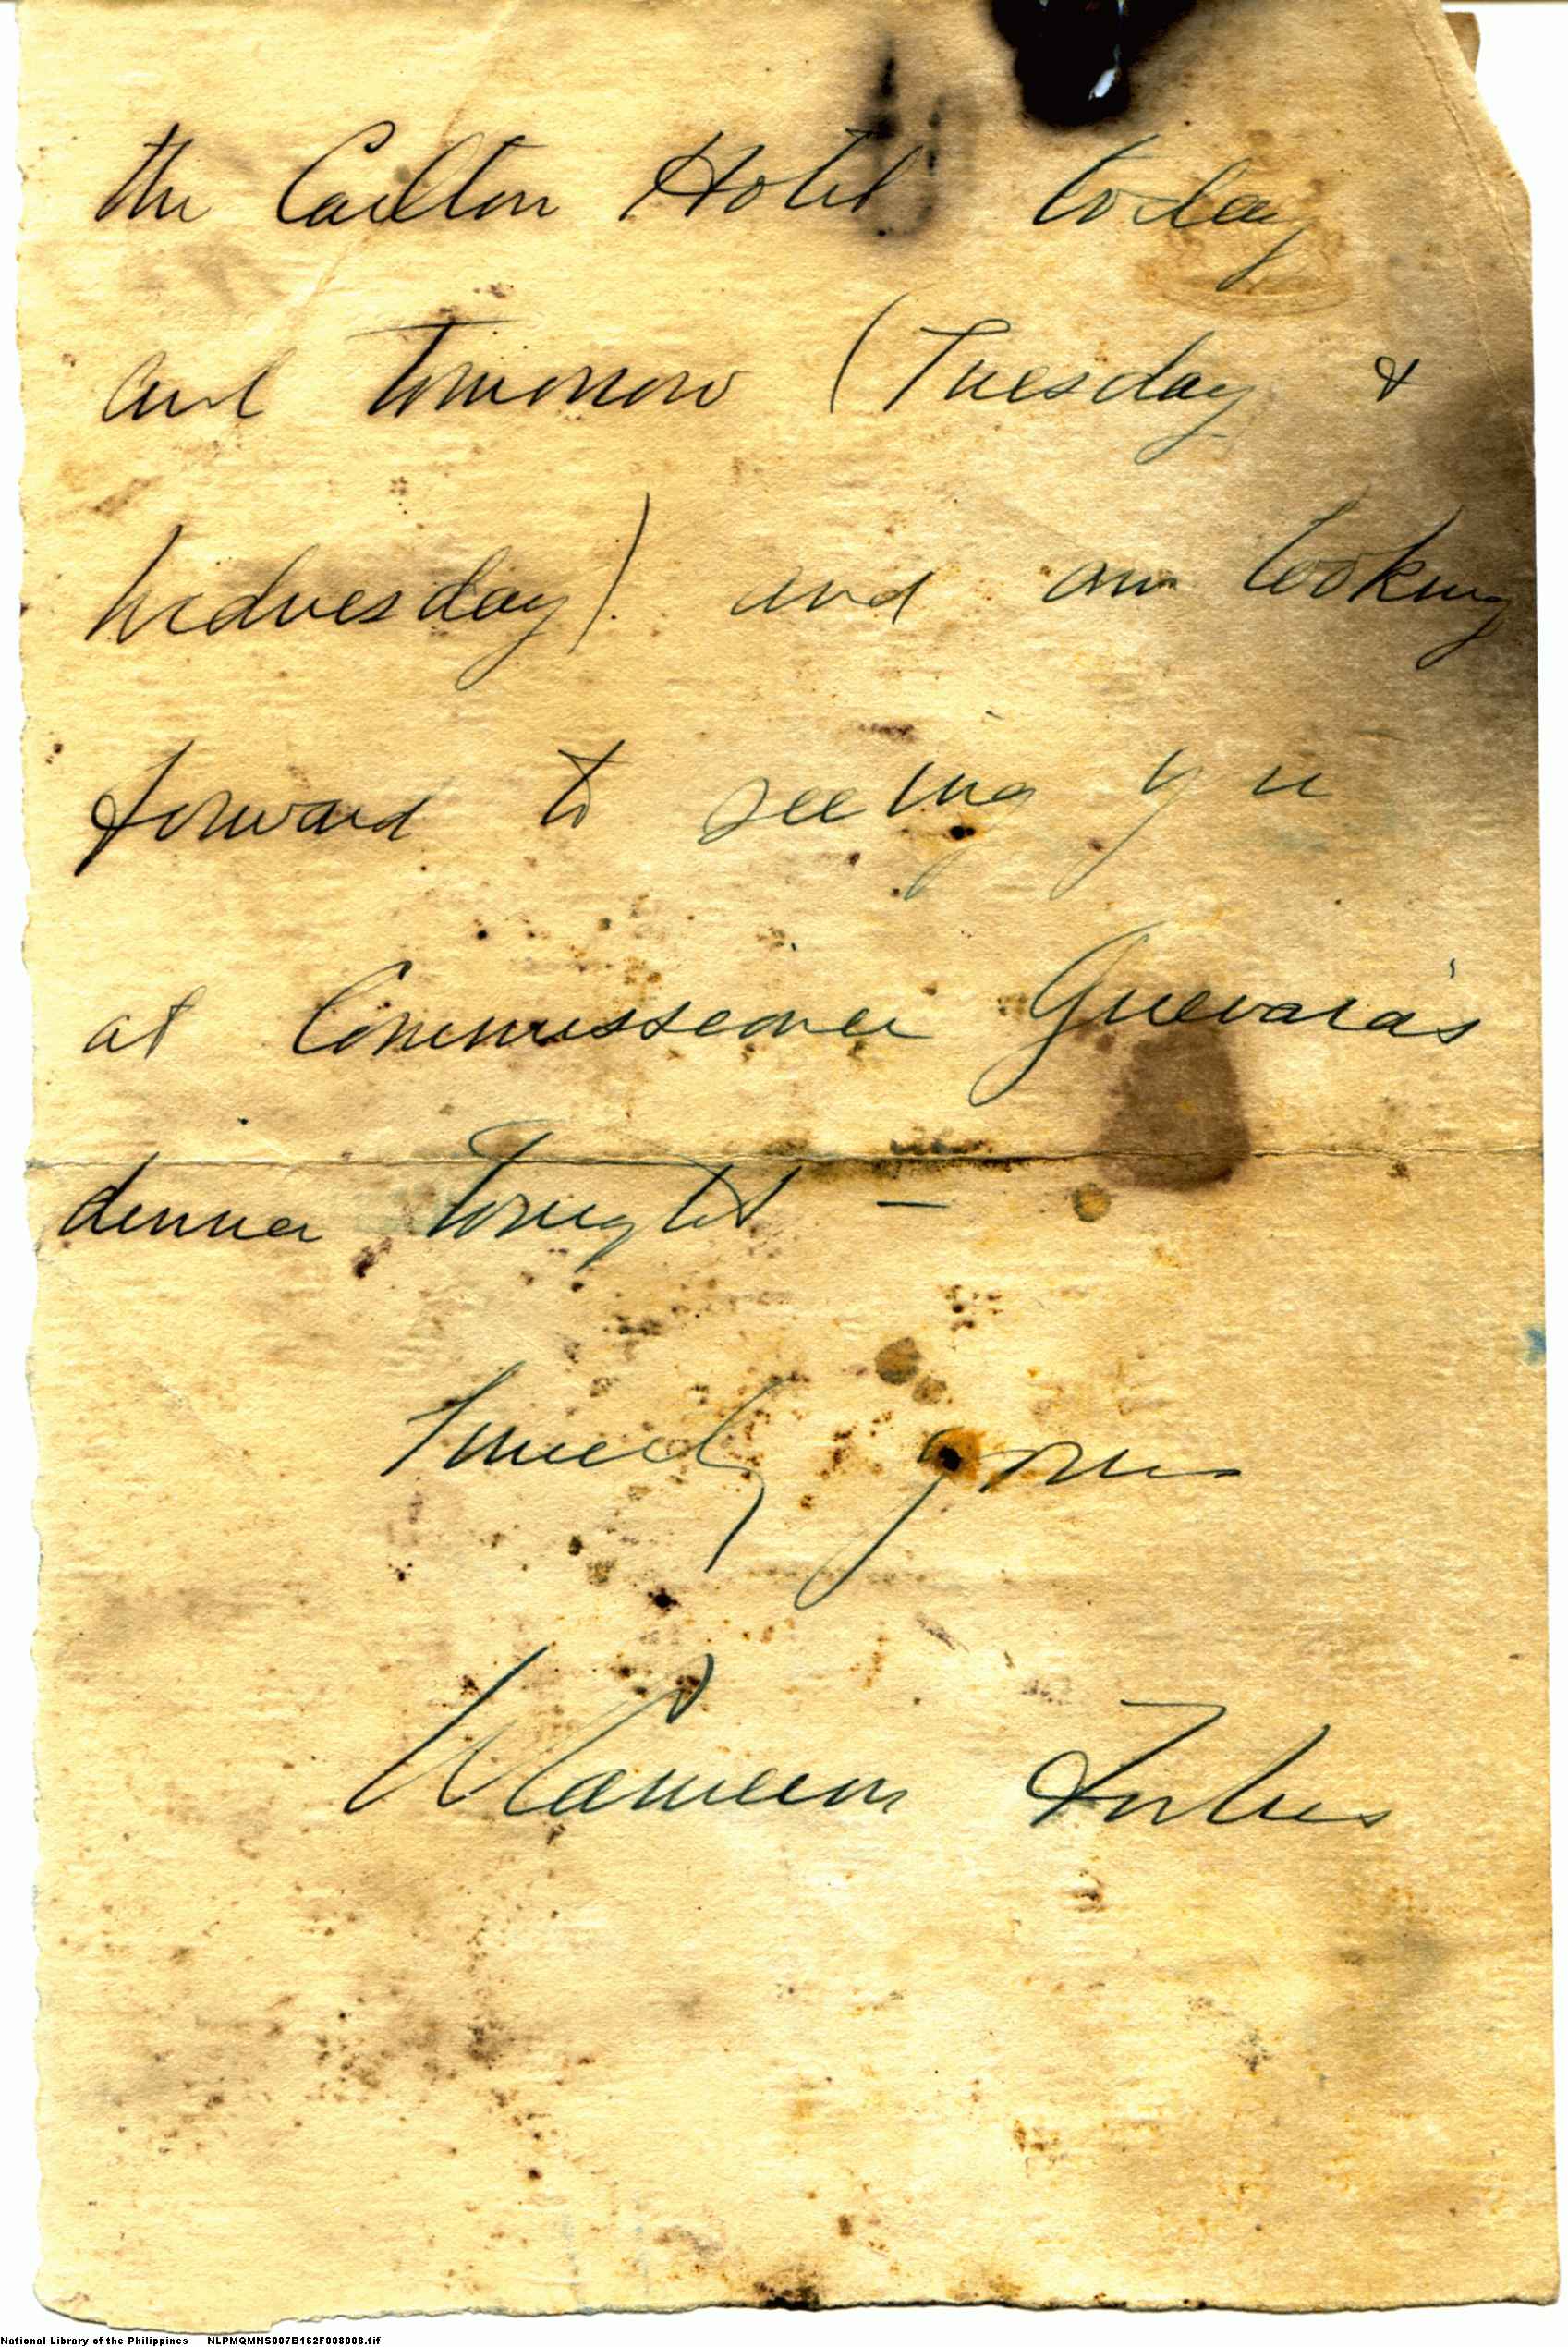 the Carlton Hotel today
and tomorrow (Tuesday &
Wednesday) and am looking
forward to seeing you
at Commissioner Guevara's
dinner tonight —
Sincerely yours
W Cameron Forbes
National Library of the Philippines NLPMQMNS007B162F008008.tif